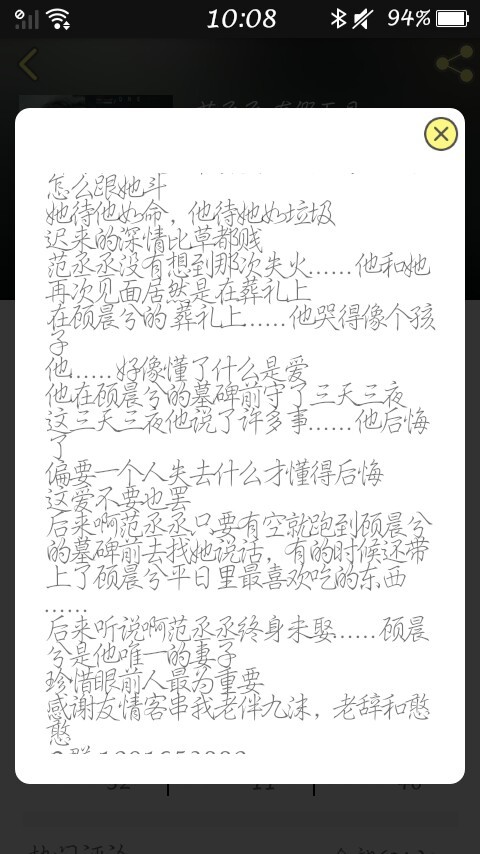 10:08
94%
怎么跟她斗
她待他如命，他待她如垃圾
迟来的深情比草都贱
范丞丞没有想到那次失火……他和她
再次见面居然是在葬礼上
在顾晨兮的葬礼上……他哭得像个孩
子
他……好像懂了什么是爱
他在顾晨兮的墓碑前守了三天三夜
这三天三夜他说了许多事……他后悔
了
偏要一个人失去什么才懂得后悔
这爱不要也罢
后来啊范丞丞只要有空就跑到顾晨兮
的墓碑前去找她说话，有的时候还带
上了顾晨兮平日里最喜欢吃的东西
……
后来听说啊范丞丞终身未娶……顾晨
兮是他唯一的妻子
珍惜眼前人最为重要
感谢友情客串我老伴九沫，老辞和憨
憨